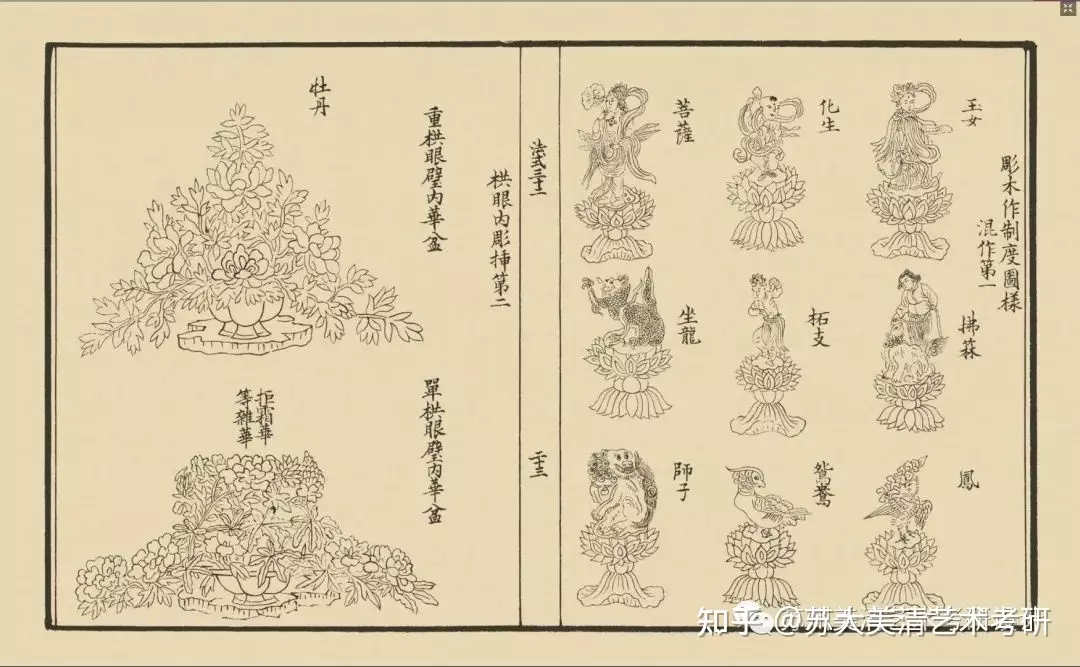 彫木作制度圖樣
混作第一
玉女
化生
菩薩
拂菻
柘支
坐龍
鳳
鴛鴦
師子
法式三十二
二十三
栱眼內彫揷第二
重栱眼壁內華盆
牡丹
單栱眼壁內華盆
拒霜華
等雜華
知乎 @苏大美清艺术考研